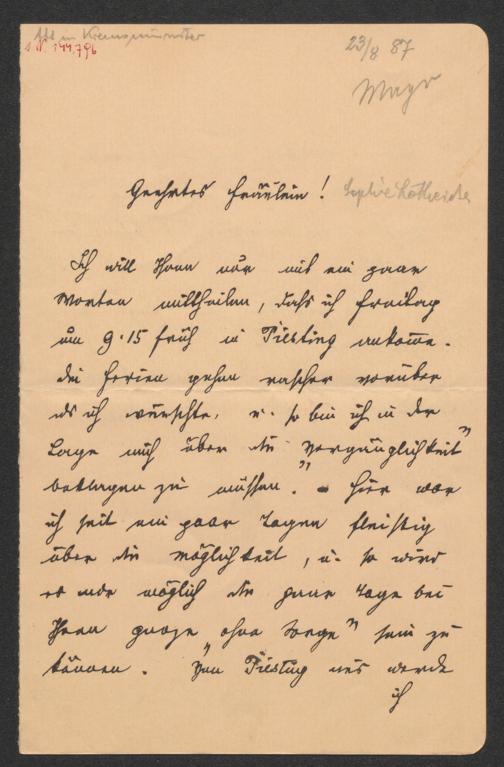 Abt in Kremsmünster
I.N. 144.796
23/8 87
Mayr
Geehrtes Fräulein!
Ich will Ihnen nur mit ein paar
Worten mittheilen, daß ich Freitag
um 9.15 früh in Piesting ankom̅e.
Die Ferien gehen rascher vorüber
als ich wünschte, u. so bin ich in der
Lage mich über die „Vergänglichkeit"
beklagen zu müssen. – Hier war
ich seit ein paar Tagen fleißig
über die Möglichkeit, u. so wird
es mir möglich die paar Tage bei
Ihnen ganz „ohne Sorge" sein zu
können. Von Piesting aus werde
ich